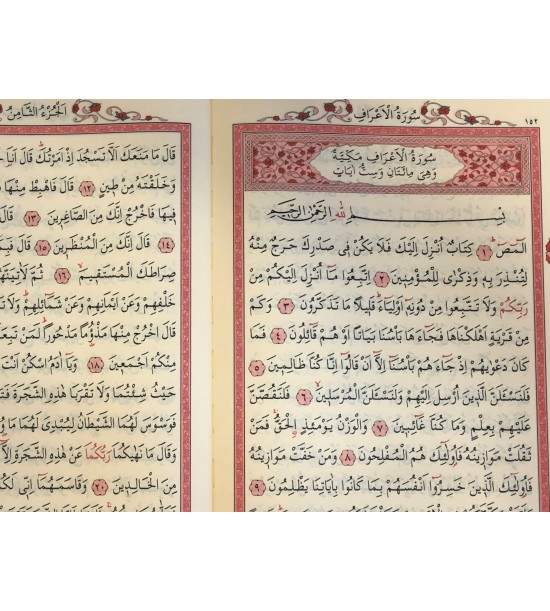 ١٥٢
سُورَةُ الْاَعْرَافِ
سُورَةُ الْاَعْرَافِ مَكِّيَّةٌ
وَهِىَ مِائَتَانِ وَسِتُّ اٰيَاتٍ
بِسْمِ اللهِ الرَّحْمٰنِ الرَّحِيمِ
الٓمٓصٓ ﴿١﴾ كِتَابٌ اُنْزِلَ اِلَيْكَ فَلَا يَكُنْ فِى صَدْرِكَ حَرَجٌ مِنْهُ
لِتُنْذِرَ بِهِ وَذِكْرٰى لِلْمُؤْمِنِينَ ﴿٢﴾ اِتَّبِعُوا مَٓا اُنْزِلَ اِلَيْكُمْ مِنْ
رَبِّكُمْ وَلَا تَتَّبِعُوا مِنْ دُونِهِٓ اَوْلِيَٓاءَ قَلِيلًا مَا تَذَكَّرُونَ ﴿٣﴾ وَكَمْ
مِنْ قَرْيَةٍ اَهْلَكْنَاهَا فَجَٓاءَهَا بَأْسُنَا بَيَاتًا اَوْ هُمْ قَٓائِلُونَ ﴿٤﴾ فَمَا
كَانَ دَعْوٰيهُمْ اِذْ جَٓاءَهُمْ بَأْسُنَٓا اِلَّٓا اَنْ قَالُٓوا اِنَّا كُنَّا ظَالِمِينَ ﴿٥﴾
فَلَنَسْـَٔلَنَّ الَّذِينَ اُرْسِلَ اِلَيْهِمْ وَلَنَسْـَٔلَنَّ الْمُرْسَلِينَ ﴿٦﴾ فَلَنَقُصَّنَّ
عَلَيْهِمْ بِعِلْمٍ وَمَا كُنَّا غَٓائِبِينَ ﴿٧﴾ وَالْوَزْنُ يَوْمَئِذٍ الْحَقُّ فَمَنْ
ثَقُلَتْ مَوَازِينُهُ فَاُولٰٓئِكَ هُمُ الْمُفْلِحُونَ ﴿٨﴾ وَمَنْ خَفَّتْ مَوَازِينُهُ
فَاُولٰٓئِكَ الَّذِينَ خَسِرُٓوا اَنْفُسَهُمْ بِمَا كَانُوا بِاٰيَاتِنَا يَظْلِمُونَ ﴿٩﴾
اَلْجُزْءُ الثَّامِنُ
قَالَ مَا مَنَعَكَ اَلَّا تَسْجُدَ اِذْ اَمَرْتُكَ قَالَ اَنَا
وَخَلَقْتَهُ مِنْ طِينٍ ﴿١٢﴾ قَالَ فَاهْبِطْ مِنْهَا
فِيهَا فَاخْرُجْ اِنَّكَ مِنَ الصَّاغِرِينَ ﴿١٣﴾ قَالَ
﴿١٤﴾ قَالَ اِنَّكَ مِنَ الْمُنْظَرِينَ ﴿١٥﴾ قَالَ
صِرَاطَكَ الْمُسْتَقِيمَ ﴿١٦﴾ ثُمَّ لَاٰتِيَنَّهُمْ
خَلْفِهِمْ وَعَنْ اَيْمَانِهِمْ وَعَنْ شَمَٓائِلِهِمْ وَلَا
قَالَ اخْرُجْ مِنْهَا مَذْؤُمًا مَدْحُورًا لَمَنْ تَبِعَكَ
مِنْكُمْ اَجْمَعِينَ ﴿١٨﴾ وَيَٓا اٰدَمُ اسْكُنْ اَنْتَ
حَيْثُ شِئْتُمَا وَلَا تَقْرَبَا هٰذِهِ الشَّجَرَةَ
فَوَسْوَسَ لَهُمَا الشَّيْطَانُ لِيُبْدِىَ لَهُمَا
وَقَالَ مَا نَهٰيكُمَا رَبُّكُمَا عَنْ هٰذِهِ الشَّجَرَةِ اِلَّٓا
مِنَ الْخَالِدِينَ ﴿٢٠﴾ وَقَاسَمَهُمَٓا اِنِّى